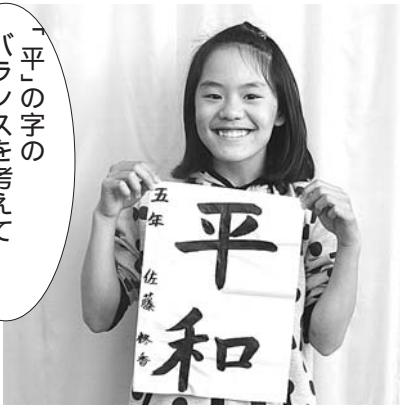 「平」の字の
バランスを考えて
平和
五年 佐藤
香